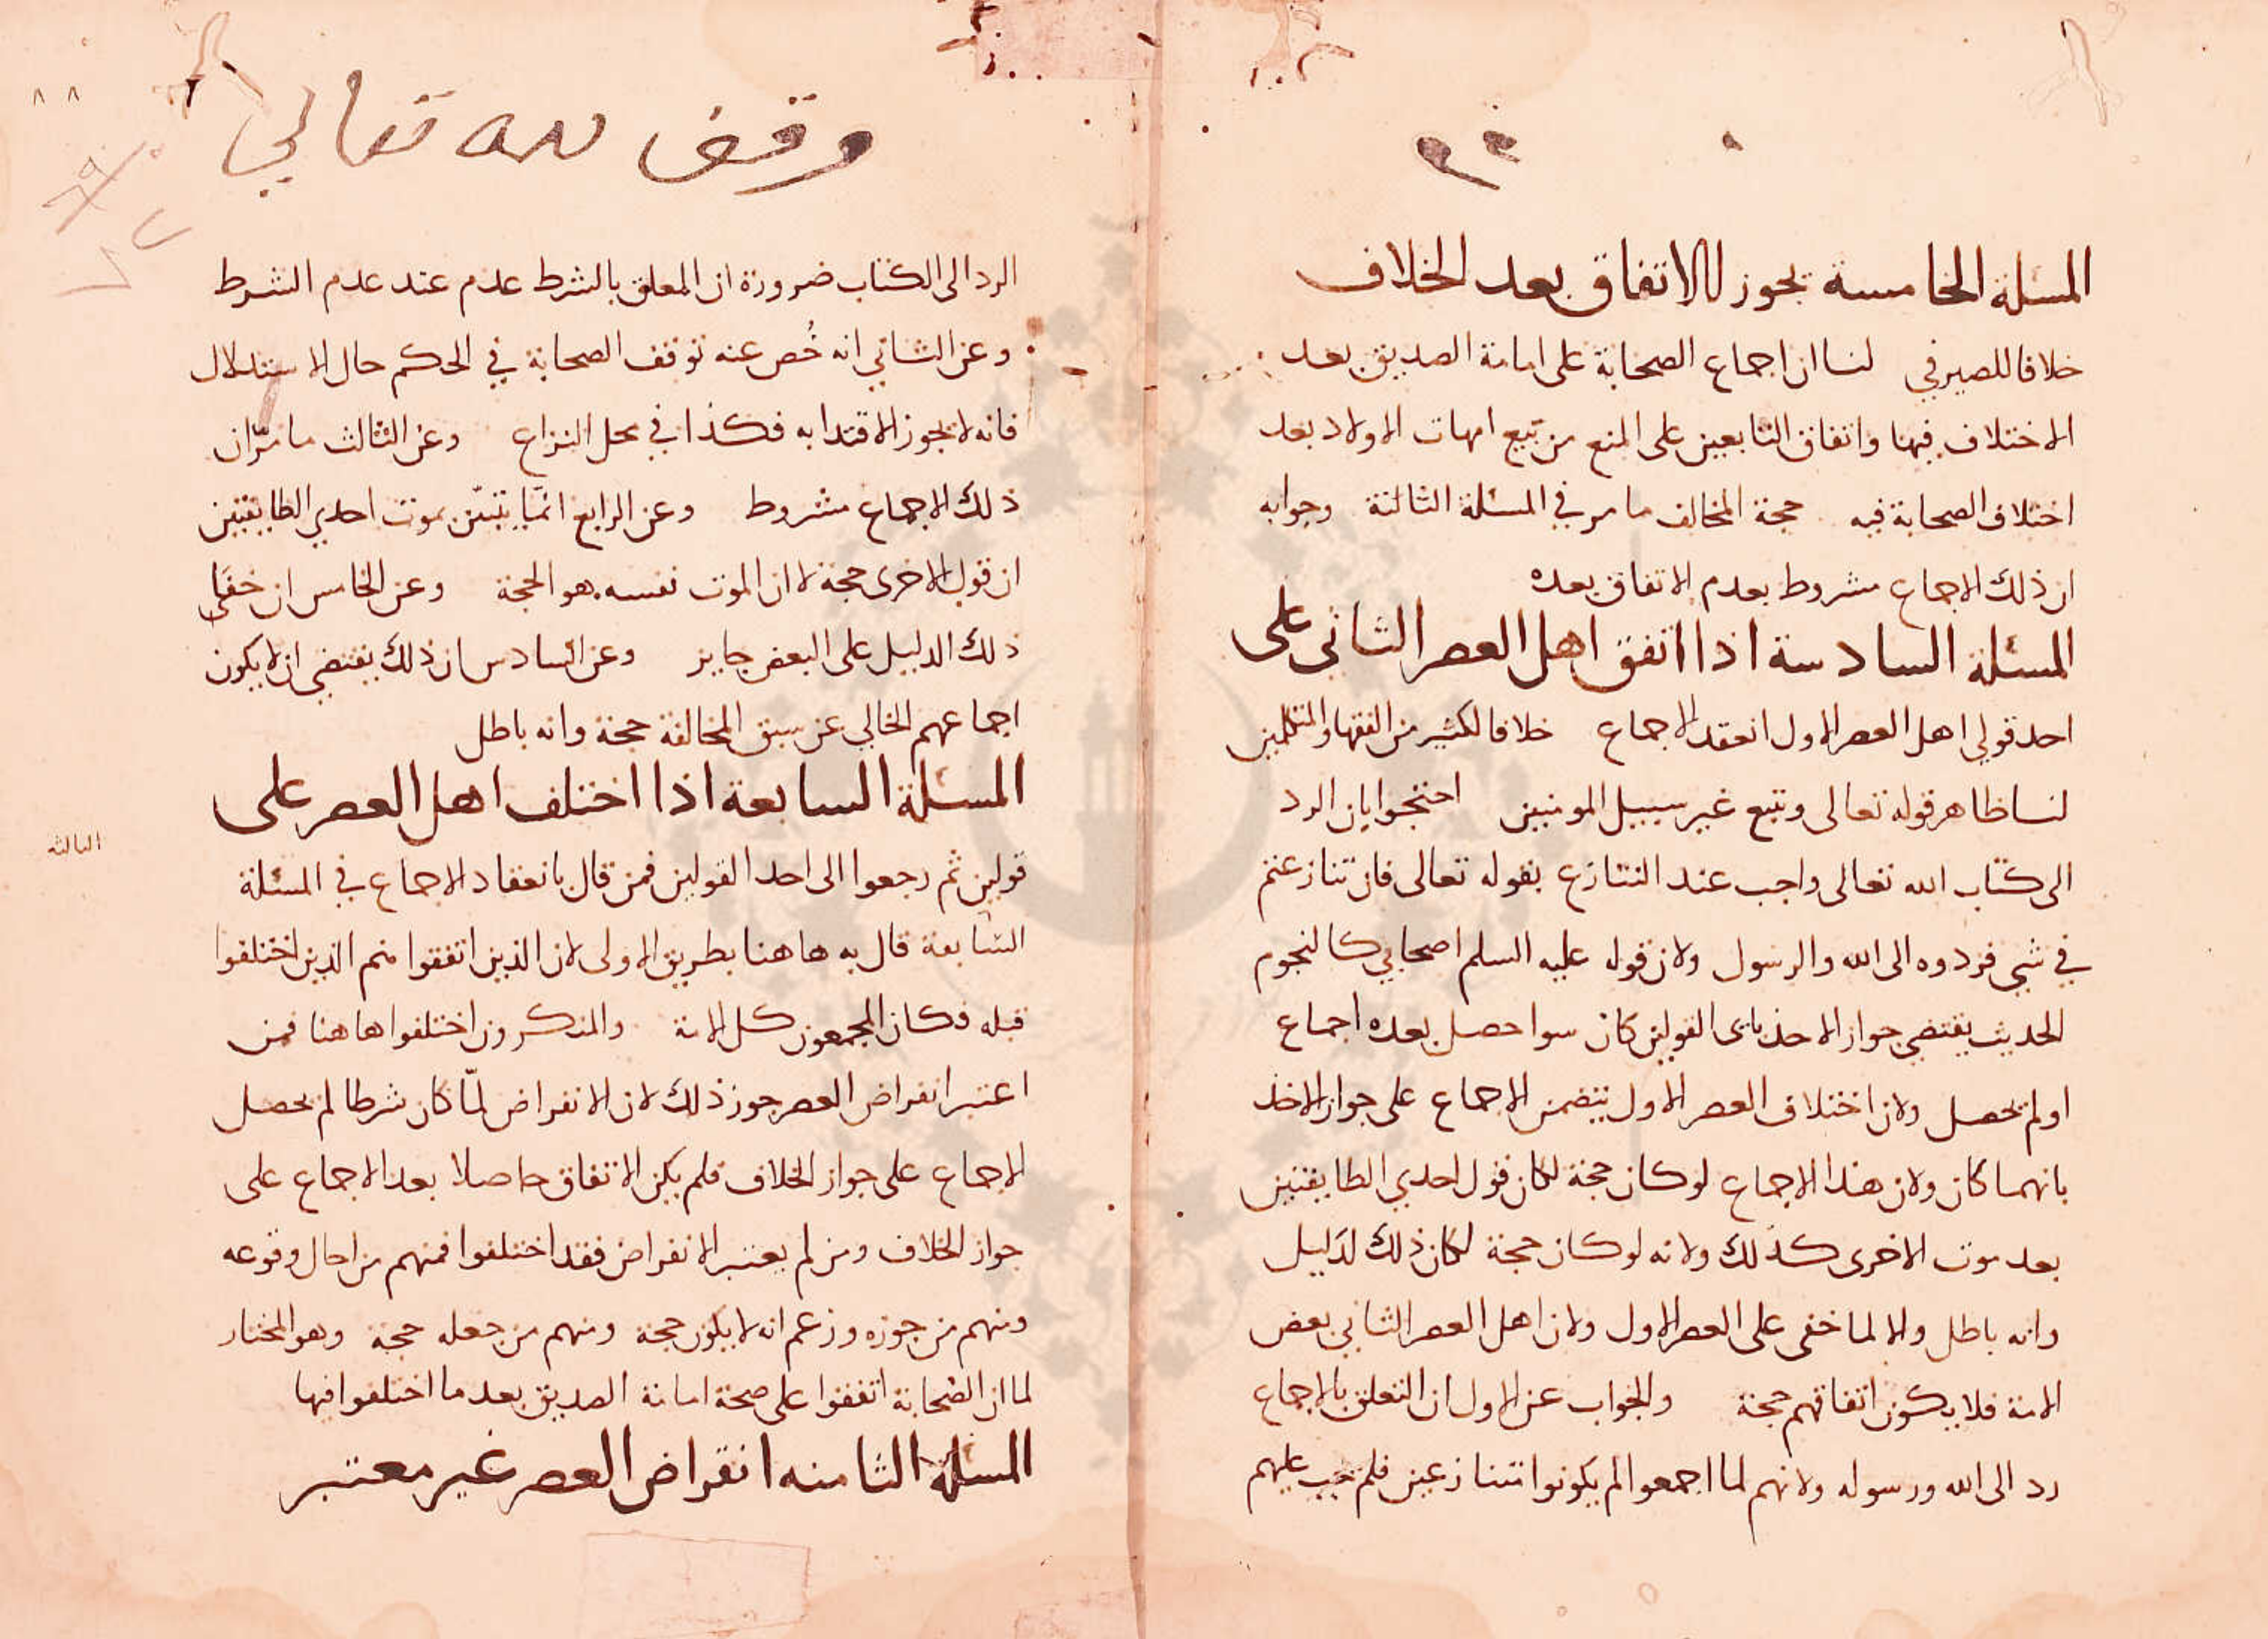 المسئلة الخامسة يجوز الاتفاق بعد الخلاف
خلافا للصيرفي لنا ان اجماع الصحابة على امامة الصديق بعد
الاختلاف فيها واتفاق التابعين على المنع من بيع امهات الاولاد بعد
اختلاف الصحابة فيه حجة المخالف ما مر في المسئلة الثالثة وجوابه
ان ذلك الاجماع مشروط بعدم الاتفاق بعده
المسئلة السادسة اذا اتفق اهل العصر الثاني على
احد قولي اهل العصر الاول انعقد الاجماع خلافا لكثير من الفقها والمتكلمين
لنا ظاهر قوله تعالى ويتبع غير سبيل المومنين احتجوا بان الرد
الى كتاب الله تعالى واجب عند التنازع بقوله تعالى فان تنازعتم
في شي فردوه الى الله والرسول ولان قوله عليه السلم اصحابي كالنجوم
الحديث يقتضي جواز الاخذ باى القولين كان سوا حصل بعده اجماع
او لم يحصل ولان اختلاف العصر الاول يتضمن الاجماع على جواز الاخذ
بايهما كان ولان هذا الاجماع لو كان حجة لكان قول احدي الطايفتين
بعد موت الاخرى كذلك ولانه لو كان حجة لكان ذلك لدليل
وانه باطل والا لما خفى على العصر الاول ولان اهل العصر الثاني بعض
الامة فلا يكون اتفاقهم حجة والجواب عن الاول ان التعلق بالاجماع
رد الى الله ورسوله ولانهم لما اجمعوا لم يكونوا متنازعين فلم يجب عليهم
٨٨
وقف لله تعالي
الرد الى الكتاب ضرورة ان المعلق بالشرط عدم عند عدم الشرط
وعن الثاني انه خُص عنه توقف الصحابة في الحكم حال الاستدلال
فانه لا يجوز الاقتدا به فكذا في محل النزاع وعن الثالث ما مرّ ان
ذلك الاجماع مشروط وعن الرابع انما يتبيّن بموت احدي الطايفتين
ان قول الاخرى حجة لا ان الموت نفسه هو الحجة وعن الخامس ان خفَى
ذلك الدليل على البعض جايز وعن السادس ان ذلك يقتضي ان لا يكون
اجماعهم الخالي عن سبق المخالفة حجة وانه باطل
المسئلة السابعة اذا اختلف اهل العصر على
قولين ثم رجعوا الى احد القولين فمن قال بانعقاد الاجماع في المسئلة
السابعة قال به هاهنا بطريق الاولى لان الذين اتفقوا هم الذين اختلفوا
قبله فكان المجمعون كل الامة والمنكرون اختلفوا هاهنا فمن
اعتبر انقراض العصر جوز ذلك لان الانقراض لمّا كان شرطا لم يحصل
الاجماع على جواز الخلاف فلم يكن الاتفاق حاصلا بعد الاجماع على
جواز الخلاف ومن لم يعتبر الانقراض فقد اختلفوا فمنهم من احال وقوعه
ومنهم من جوزه وزعم انه لا يكون حجة ومنهم من جعله حجة وهو المختار
لما ان الصحابة اتفقوا على صحة امامة الصديق بعد ما اختلفوا فيها
المسئلة الثامنه انقراض العصر غير معتبر
الثالثه